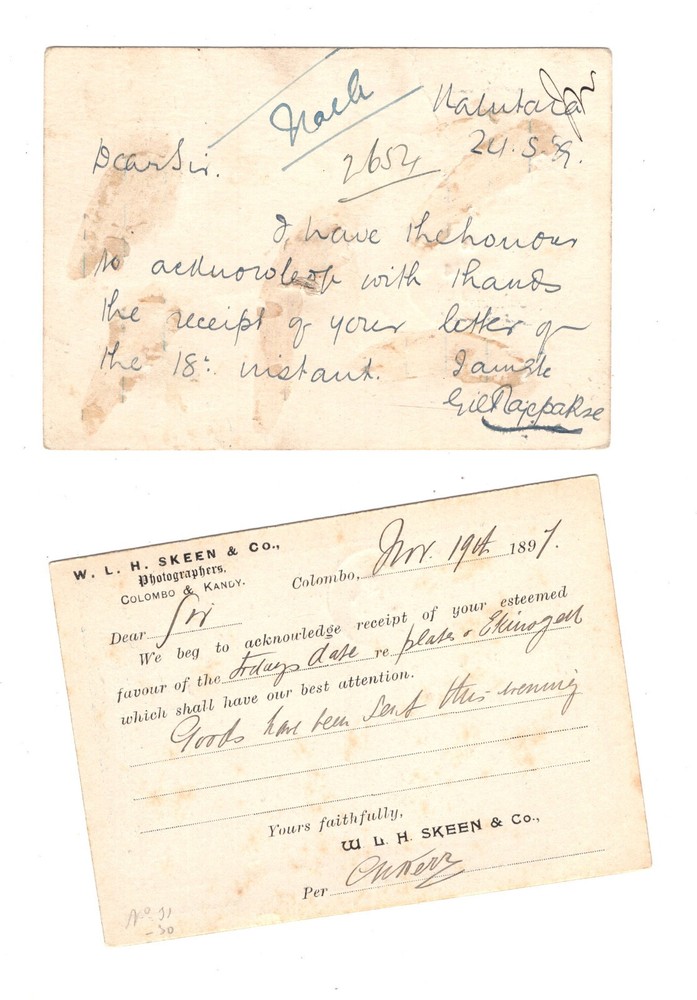 Kalutara
24.5.
2654
Dear Sir.
I have the honour
to acknowledge with thanks
the receipt of your letter of
the 18th instant. I am Sir
W. L. H. SKEEN & Co.,
Photographers,
COLOMBO & KANDY.
Colombo, Nov. 19th 1897.
Dear Sir
We beg to acknowledge receipt of your esteemed
favour of the todays date re plates &
which shall have our best attention.
Goods have been sent this evening
Yours faithfully,
W. L. H. SKEEN & Co.,
Per
No 31
-30